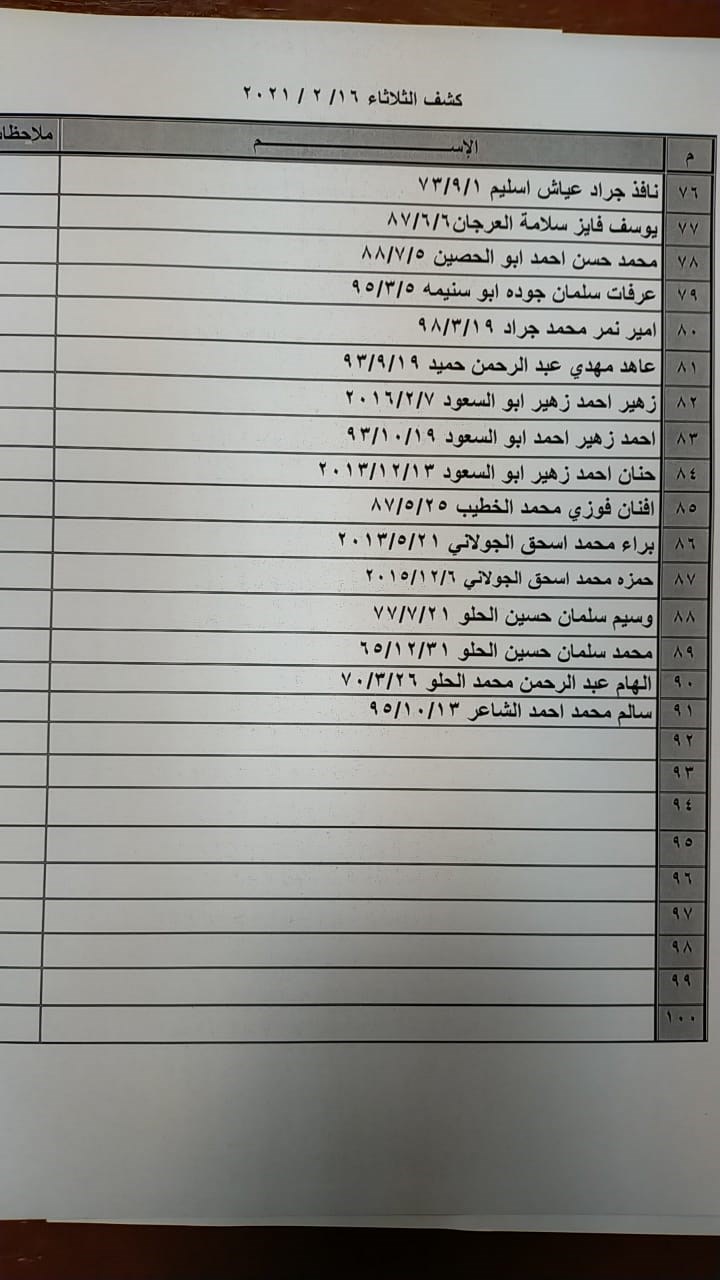 كشف الثلاثاء ١٦/ ٢ / ٢٠٢١
م الإســــــم ملاحظات
٧٦ نافذ جراد عياش اسليم ٧٣/٩/١
٧٧ يوسف فايز سلامة العرجان٨٧/٦/٦
٧٨ محمد حسن احمد ابو الحصين ٨٨/٧/٥
٧٩ عرفات سلمان جوده ابو سنيمه ٩٥/٣/٥
٨٠ امير نمر محمد جراد ٩٨/٣/١٩
٨١ عاهد مهدي عبد الرحمن حميد ٩٣/٩/١٩
٨٢ زهير احمد زهير ابو السعود ٢٠١٦/٢/٧
٨٣ احمد زهير احمد ابو السعود ٩٣/١٠/١٩
٨٤ حنان احمد زهير ابو السعود ٢٠١٣/١٢/١٣
٨٥ افنان فوزي محمد الخطيب ٨٧/٥/٢٥
٨٦ براء محمد اسحق الجولاني ٢٠١٣/٥/٢١
٨٧ حمزه محمد اسحق الجولاني ٢٠١٥/١٢/٦
٨٨ وسيم سلمان حسين الحلو ٧٧/٧/٢١
٨٩ محمد سلمان حسين الحلو ٦٥/١٢/٣١
٩٠ الهام عبد الرحمن محمد الحلو ٧٠/٣/٢٦
٩١ سالم محمد احمد الشاعر ٩٥/١٠/١٣
٩٢
٩٣
٩٤
٩٥
٩٦
٩٧
٩٨
٩٩
١٠٠